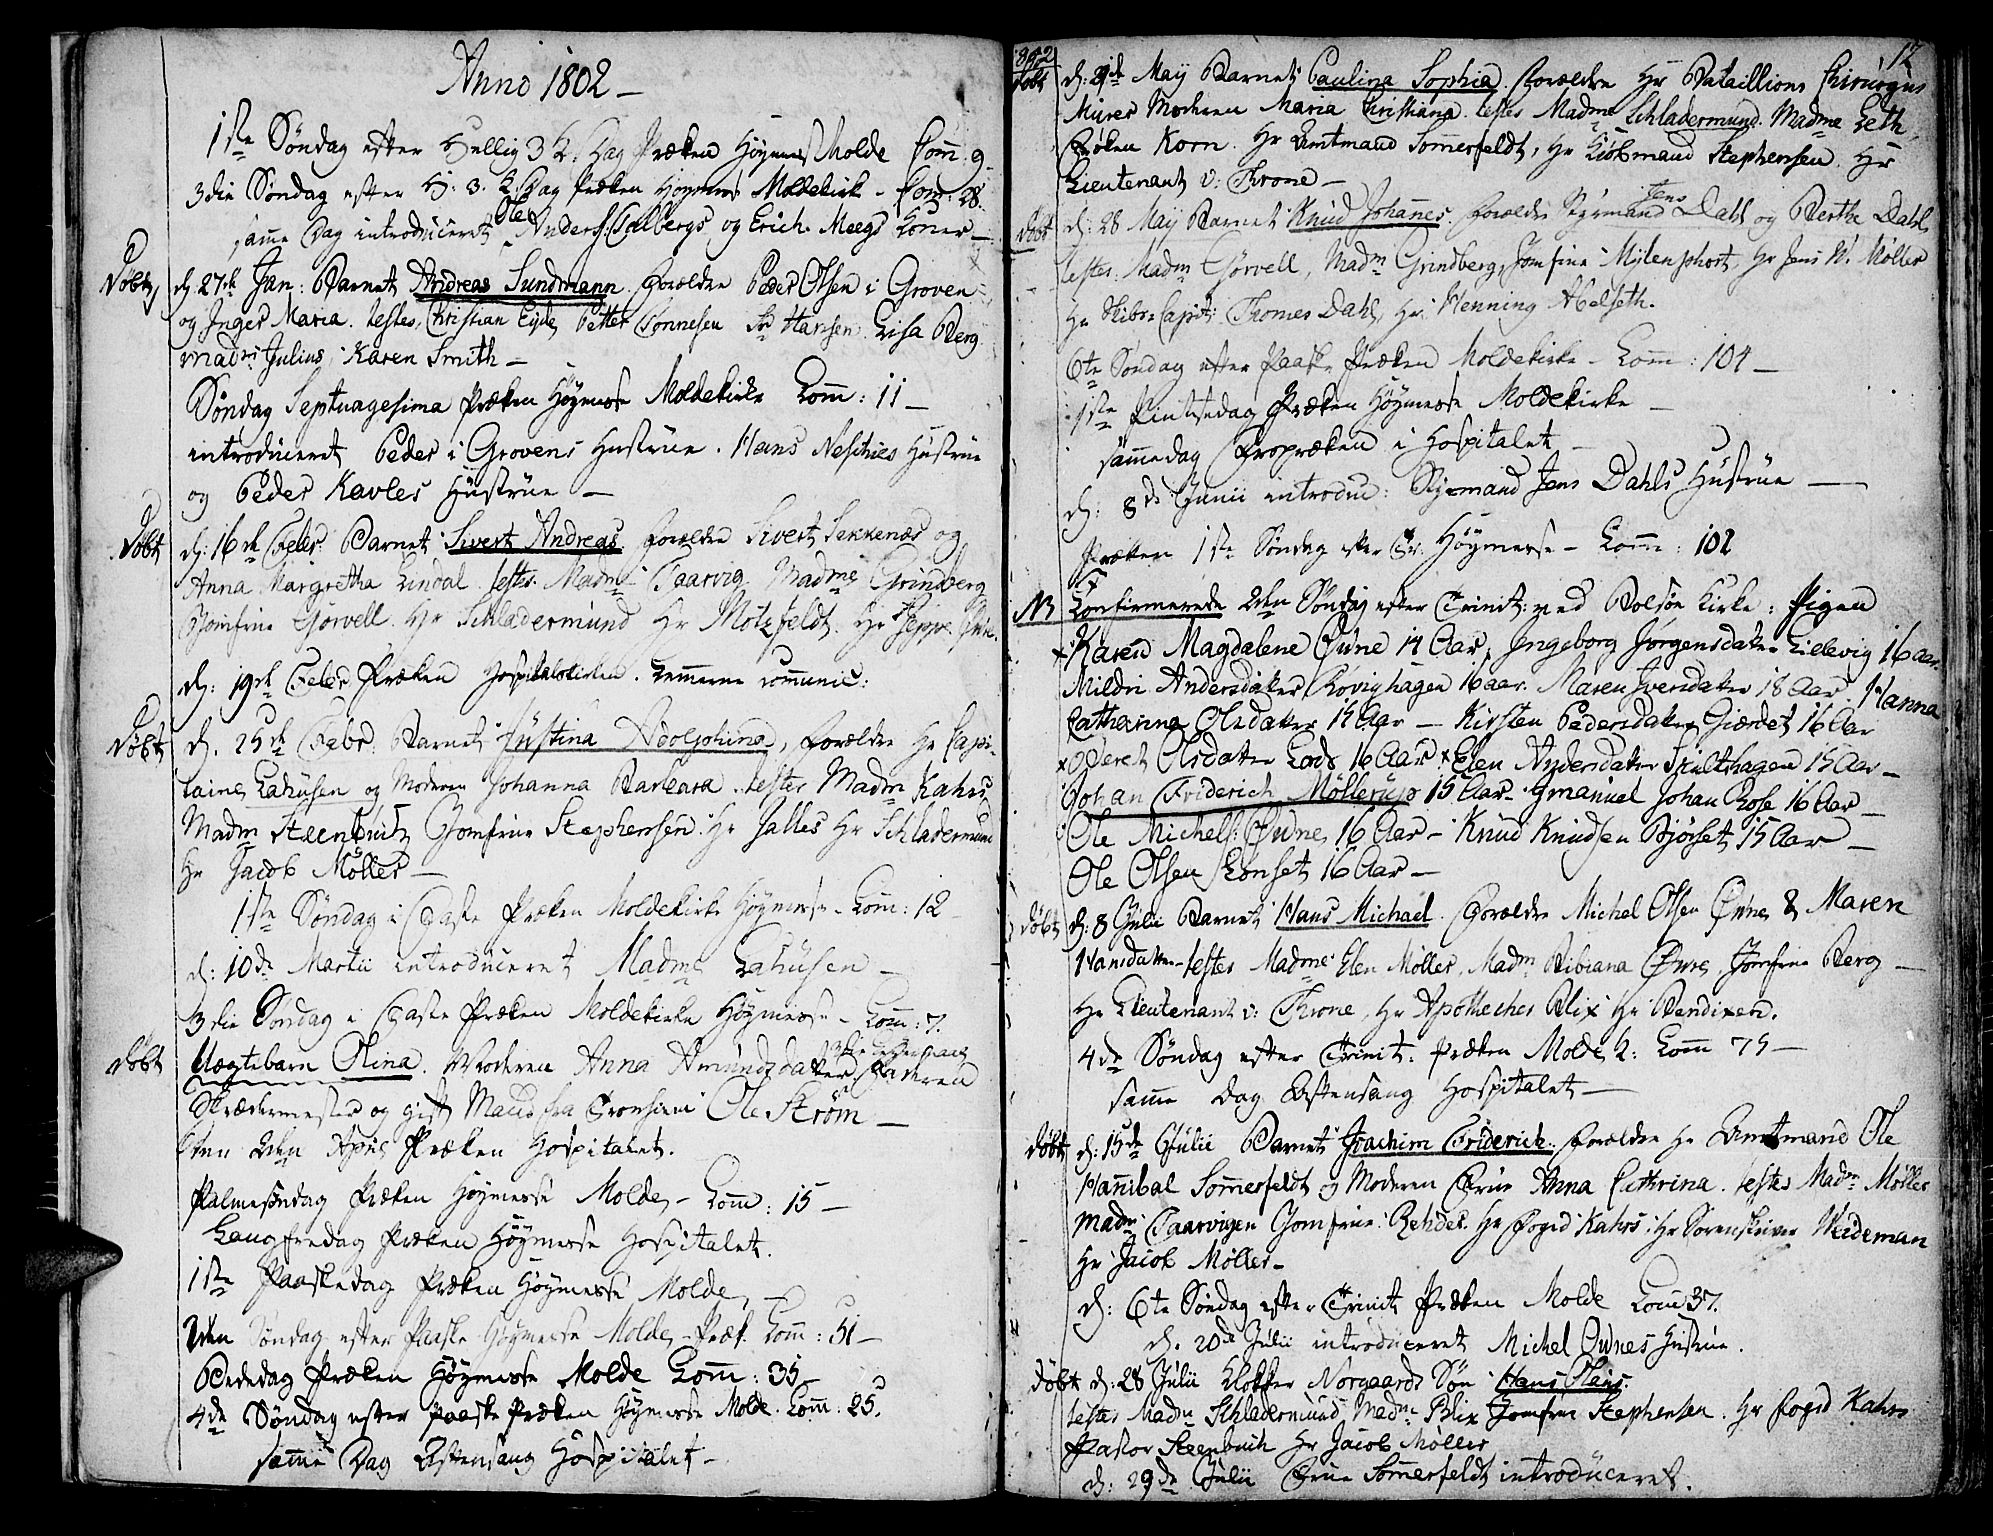 Anno 1802 –
1ste Söndag efter Hellig 3 K. Dag Præken Höymesse Molde Com̅: 9.
3die Söndag efter H: 3. K. Dag Præken Höymesse Moldekirk – Com̅: 28.
samme Dag introduceret Ole Anders: Talbergs og Erich Meegs Koner –
Döbt d. 27de Jan: Barnet Andreas Sundmann. Forældre Peder Olsen i Groven
og Inger Maria. testes, Christian Eyde, Petter Tönnesen Hansen Lisa Berg
Madm Julius, Karen Smith –
Söndag Septuagesima Præken Höymesse Moldekirke Com̅: 11 –
introduceret Peder i Grovens Hustrue. Hans Neschies Hustrue
og Peder Kavles Hustrue –
Döbt d: 16de Febr: Barnet Sivert Andreas forældre Sivert Sekkenæs og
Anna Margretha Lindal. testes Madme Taarvig Madme Grindberg
Jomfrue Görvell. Hr Schladermund Hr Motzfeldt. Hr Jeppe
d: 19de Febr Præken Hospitalskirken. Lemmerne communic:
Döbt d. 25de Febr: Barnet Justina Adolphina, forældre Hr Capi-
taine Lahusen og Moderen Johanna Barbara. testes Madm Kahrs
Madm Steenbuch Jomfrue Stephensen. Hr Salles Hr Schladermund
Hr Jacob Möller –
1ste Söndag i Faste Præken Moldekirke Höymesse – Com̅: 12
d: 10de Martii introduceret Madme Lahusen –
3die Söndag i Faste Præken Moldekirke Höymesse – Com̅: 7.
Döbt Uægtebarn Olina. Moderen Anna Amundsdatter Faderen
Skrædermester og gift Mand fra Tronhiem Ole Ström –
den 2den April Præken Hospitalet.
Palmesöndag Præken Höymesse Molde – Com̅: 15 –
Langfredag Præken Höymesse Hospitalet.
1ste Paaskedag Præken Höymesse Molde, –
2den Söndag efter Paaske Höymesse Molde – Præk. Com̅: 51 –
Bededag Præken Höymesse Molde Com̅: 35 –
4de Söndag efter Paaske Præken Höymesse Molde. Com̅: 25.
samme Dag Aftensang Hospitalet –
1802 17
Döbt d: 21de Maÿ Barnet Paulina Sophia. Forældre Hr Bataillions Chirurgus
Mürer Moderen Maria Christiana. testes Madme Schladermund. Madme Leth
Fröken Korn. Hr Amtmand Sommerfeldt, Hr Kiöbmand Stephensen. Hr
Lieutenant v: Throne –
Döbt d: 28 Maÿ Barnet Knud Johannes. forældre Styrmand Jens Dahl og Berthe Dahl,
testes. Madm Görvell, Madm Grindberg, Jomfrue Mylenphort, Hr Jens W. Möller
Hr Skibs-Capit: Thomes Dahl, Hr Henning Abelseth.
6te Söndag efter Paaske Præken Moldekirke – Com̅: 104 –
1ste Pintsedag Præken Höymesse Moldekirke –
sammedag Fropræken i Hospitalet –
d: 8de Junii introduc: Styrmand Jens Dahls Hustrue –
Præken 1ste Söndag efter Tr: Höymesse – Com̅: 102
NB Confirmerede 2den Söndag efter Trinit: ved Bolsöe Kirke: Pigen
x Karen Magdalene Öwne 14 Aar, Ingeborg Jörgensdater Lillevig 16 aar.
Mildri Andersdater Rövighagen 16 aar. Maren Iversdater 18 Aar. Hanna
Catharina Olsdater 15 Aar – Kirsten Pedersdater Giærdet 16 Aar
x Beret Olsdater Lods 16 Aar x Elen Andersdater Hielthagen 15 Aar –
Johan Friderich Möllerup 15 Aar – Emanuel Johan Rose 16 Aar –
Ole Michels: Öwne, 16 Aar – Knud Knudsen Biörset 15 Aar –
Ole Olsen Lonset 16 Aar –
Döbt d: 8 Julii Barnet Hans Michael. Forældre Michel Olsen Öwne & Maren
Hansdatter – testes Madme Elen Möller, Madm Bibiana Öwne, Jomfrue Berg –
Hr Lieutenant v: Throne, Hr Apothecher Blix Hr Bendixen.
4de Söndag efter Trinit: Præken Molde K: Com̅ 75 –
samme Dag Aftensang Hospitalet –
Döbt d: 15de Julii Barnet Joachim Friderich. Forældre Hr Amtmand Ole
Hannibal Sommerfeldt og Moderen Frue Anna Cathrina. testes Madm Möller
Madm Taarvigen Jomfrue Rehder. Hr Foged Kahrs. Hr Sorenskriver Weideman
Hr Jacob Möller –
d: 6te Söndag efter Trinit Præken Molde Com̅ 37.
d. 20de Julii introduceret Michel Öwnes Hustrue.
Döbt d: 28 Julii Klokker Norgaards Sön Hans Olaus.
testes Madm Schladermund Madm Blix Jomfrue Stephensen. Hr Foged Kahrs
Pastor Steenbuch Hr Jacob Möller
d: 29de Julii Frue Sommerfeldt introduceret.